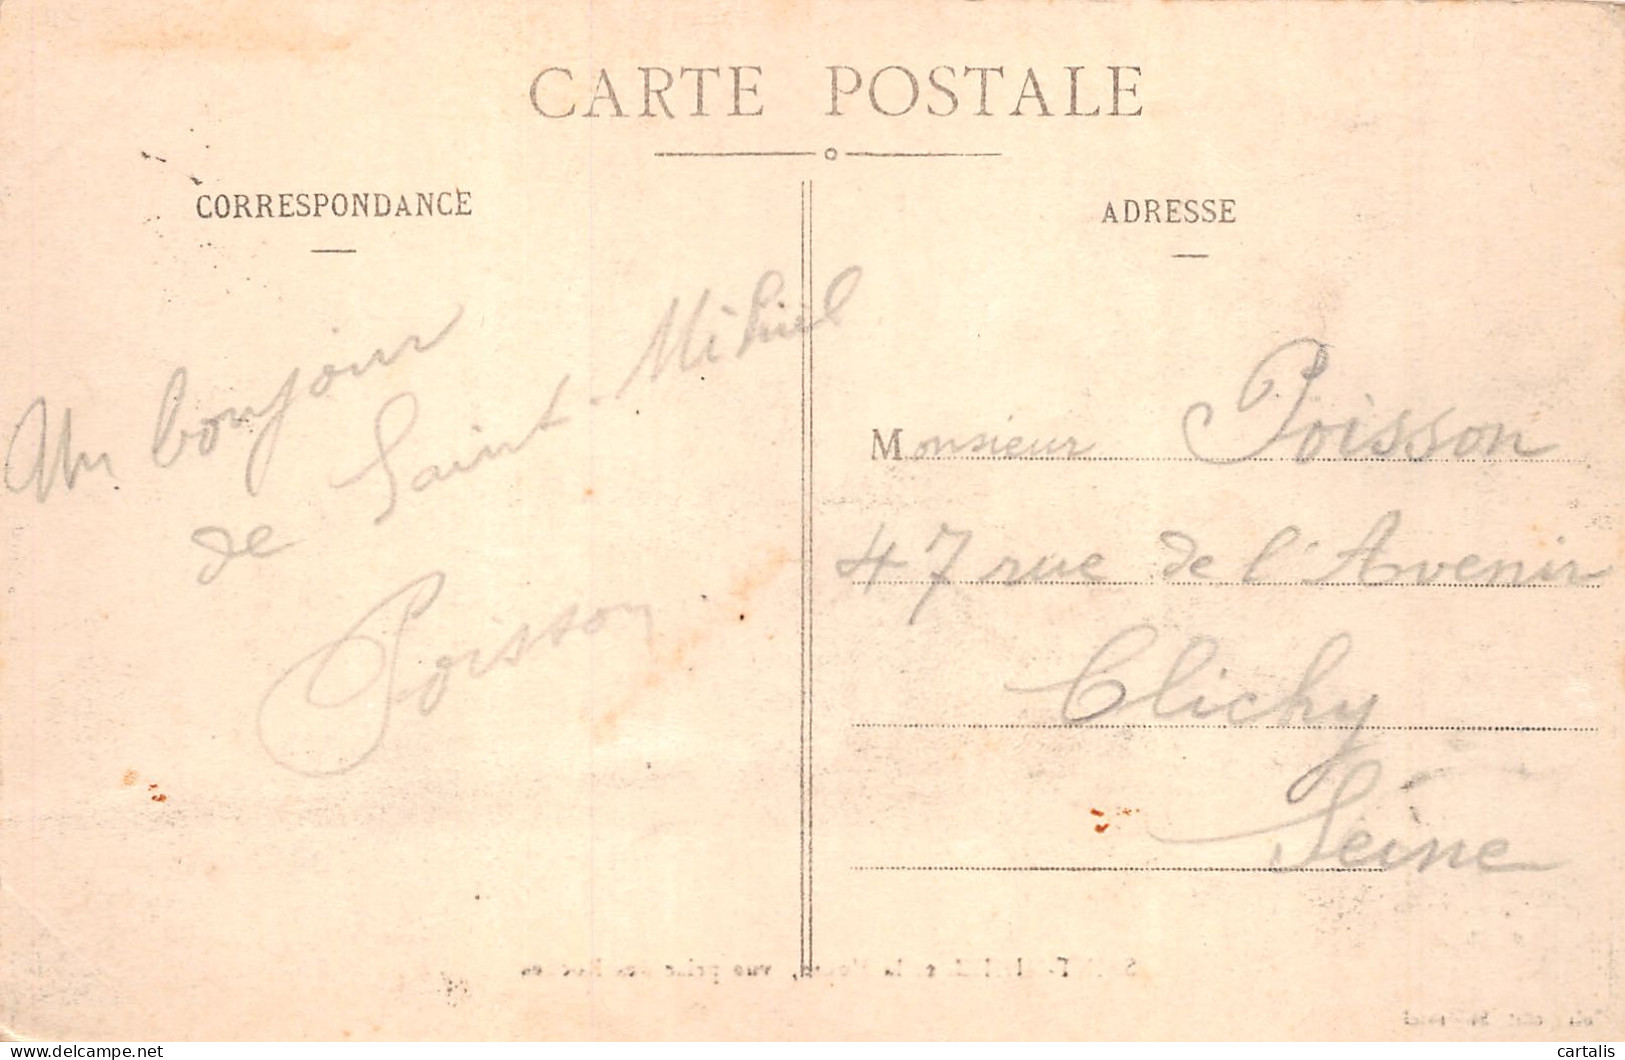 CARTE POSTALE
CORRESPONDANCE
Un bonjour
de Saint-Mihiel
Poisson
ADRESSE
Monsieur Poisson
47 rue de l'Avenir
Clichy
Seine
https://www.delcampe.net
cartalis